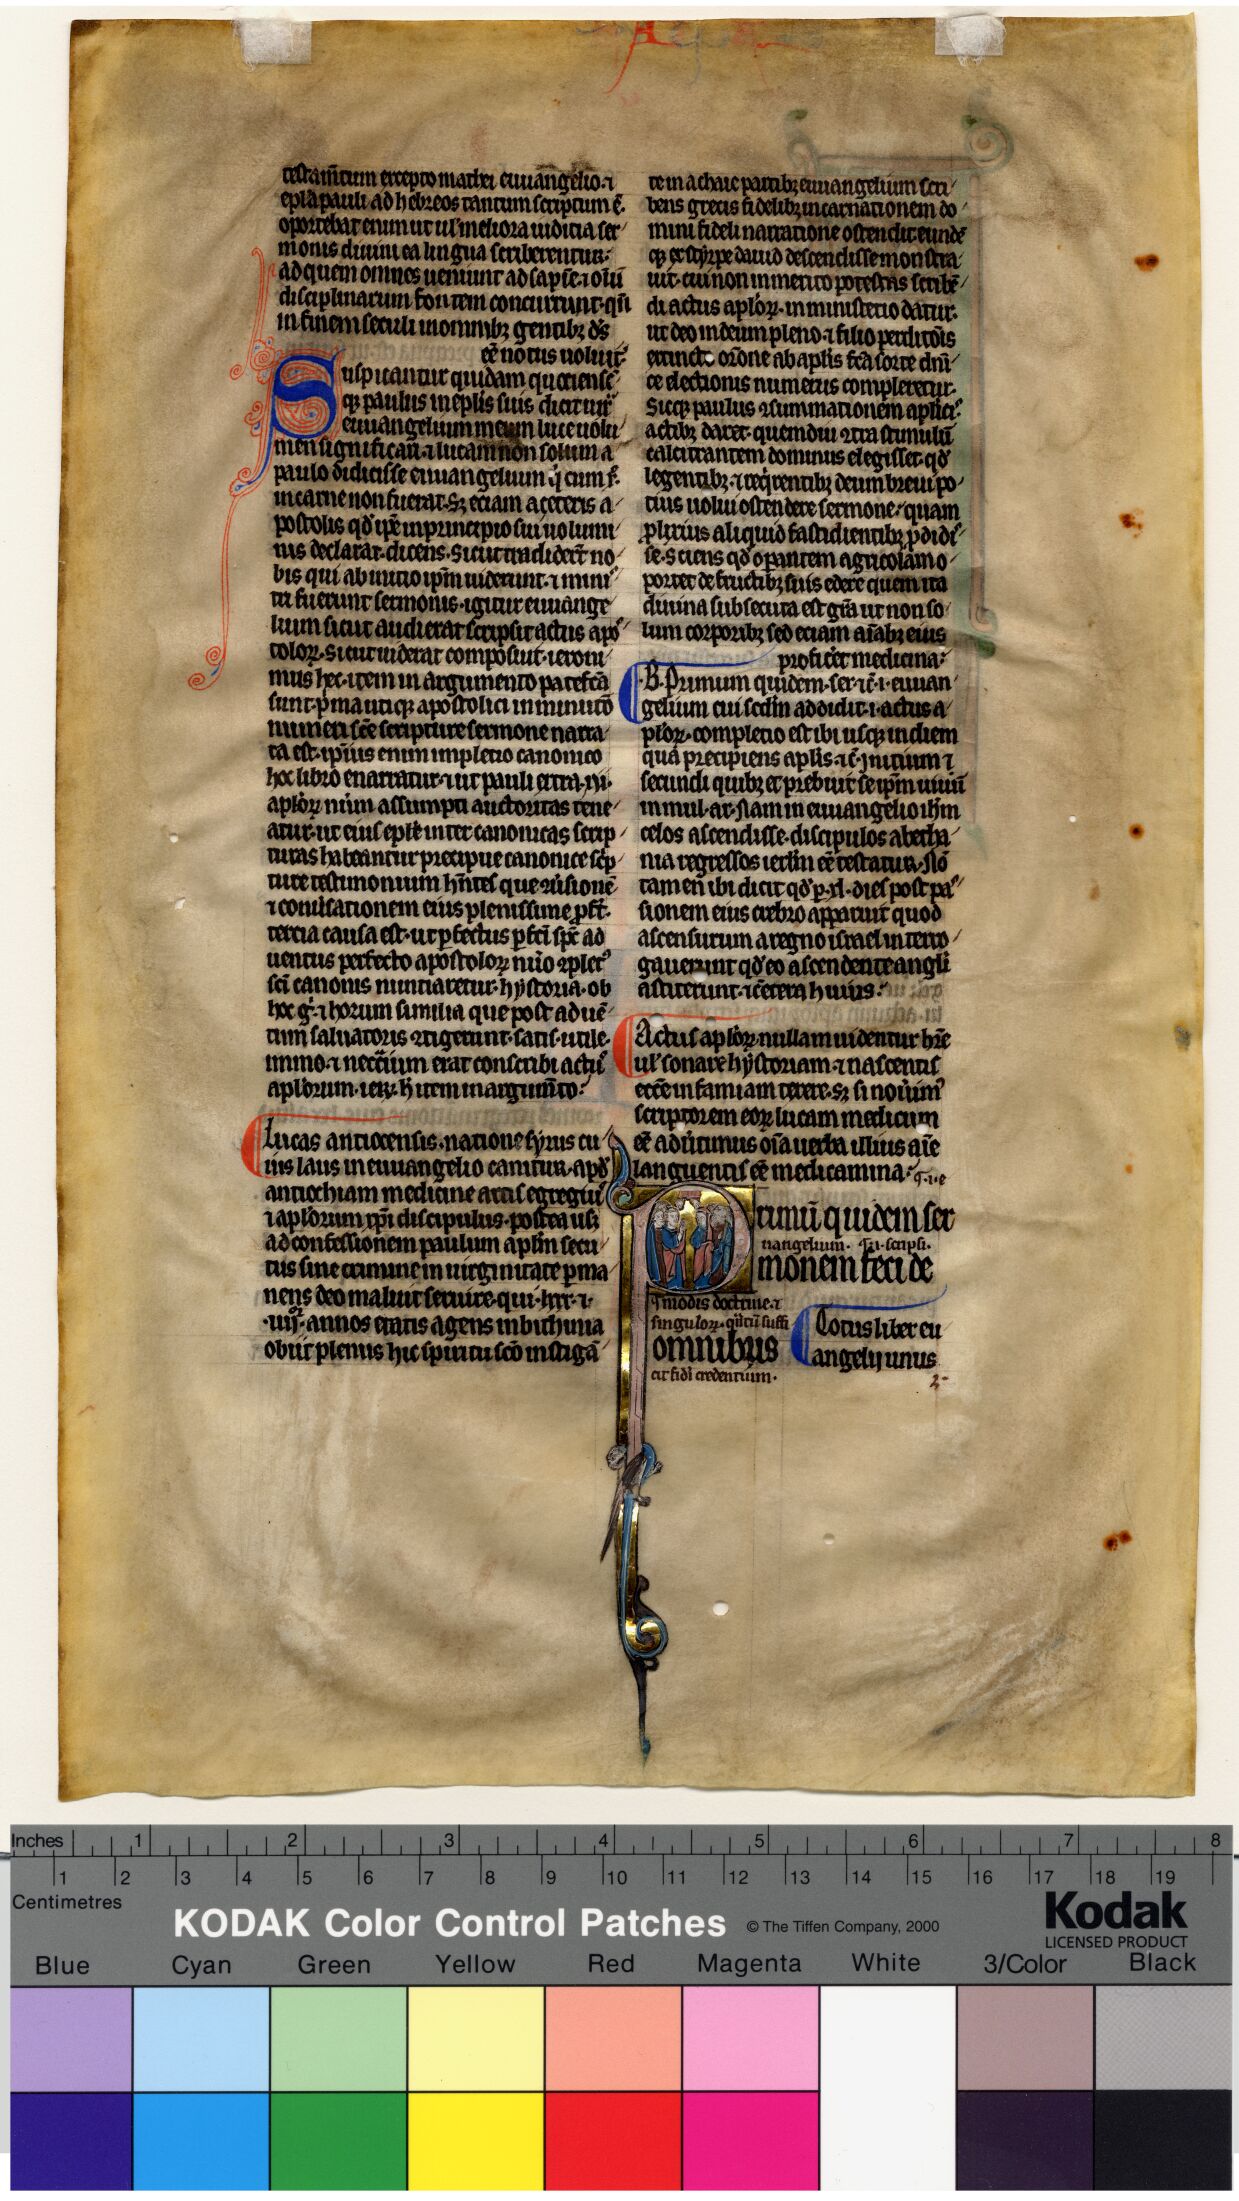 A
testam̄tum excepto mathei euuangelio. ⁊
epl̄a pauli ad hebreos tantum scriptum ē.
oportebat enim ut ul' meliora iudicia ser
monis diuini ea lingua scriberentur.
ad quem omnes ueniunt ad sap̄se. ⁊ oīu
disciplinarum fontem concurrunt. q̄si
in finem seculi in omnibꝫ gentibꝫ d̄s
eē notus uoluit.
Suspicantur quidam quociensc
cqꝫ paulus in eplis suis dicit iux
euuangelium meum luce uolu
men significari. ⁊ lucam non solum a
paulo didicisse euuangelium q̇ cum
in carne non fuerat. sꝫ eciam a ceteris a
postolis qd' ip̄e in principio sui uolumi
nis declarat. dicens. Sicut tradider̄t no
bis qui ab inicio ip̄m uiderunt. ⁊ mini
tri fuerunt sermonis. igitur euuange
lium sicut audierat scripsit actus apo
tolorꝫ. sicut uiderat composuit. ieroni
mus hec. item in argumento patefc̄a
sunt. p̄ma utiqꝫ apostolici in minutō
numeri sc̄e scripture sermone narra
ta est. ip̄ius enim impletio canonico
hoc libro enarratur. ⁊ ut pauli extra. xij.
ap̄lorꝫ nūm assumpti auctoritas tene
atur. ut eius epl̄e inter canonicas scrip
turas habeantur precipue canonice sc̄p
ture testimonium hn̄tes que ɔu̇sionē
⁊ conu̇sationem eius plenissime ꝓfīt.
tercia causa est. ut ꝑfectus ꝑfc̄i sp̄c ad
uentus perfecto apostolorꝫ nūo ɔplet'
sc̄i canonis nuntiaretur. hystoria. ob
hoc g̊. ⁊ horum similia que post aduē
tum saluatoris ɔtigerunt. satis. utile.
immo. ⁊ neccīum erat conscribi actu'
ap̄lorum. ier. h̄ item in argum̄to.
Lucas antiocensis. natione syrus cu
ius laus in euuangelio canitur. apd'
antiochiam medicine artis egregiu'
⁊ ap̄lorum xp̄i discipulus. postea usꝫ
ad confessionem paulum ap̄lm secu
tus sine crimine in uirginitate ꝑma
nens deo maluit seruire. qui. lxx. ⁊.
.iiij. annos etatis agens in bithinia
obiit plenus hic spiritu sc̄o instiga
te in achaie partibꝫ euuangelium scri
bens grecis fidelibꝫ incarnationem do
mini fideli narratione ostendit. eunde
qꝫ ex styrpe dauid descendisse monstra
uit. cui non inmerito potestas scribē
di actus ap̄lorꝫ. in ministerio datur.
ut deo in deum pleno. ⁊ filio perditōis
extincto. or̄one ab ap̄lis fc̄a sorte dn̄i
ce electionis numerus compleretur.
Sicqꝫ paulus ɔsummationem ap̄lici'
actibꝫ daret. quem diu ɔtra stimulū
calcitrantem dominus elegisset. qd'
legentibꝫ. ⁊ req̇rentibꝫ deum breui po
tius uolui ostendere sermone. quam
ꝓlixius aliquid fastidientibꝫ ꝓdidi
sse. Sciens qd' oꝑantem agricolam o
portet de fructibꝫ suis edere quem ita
diuina subsecuta est gr̄a ut non so
lum corporibꝫ sed eciam aīabꝫ eius
proficeret medicina.
.B. Primum quidem. ser. ⁊c̄. i. euuan
gelium cui sed'm addidit. i. actus a
pl̄orꝫ. completio est ibi usqꝫ in diem
qua precipiens ap̄lis. ⁊c̄. inicium ⁊
secundi quibꝫ et prebuit se ip̄m uiuū
in mul. ar. Nam in euuangelio ihm̄
celos ascendisse. discipulos a betha
nia regressos ierl̄m eē testatur. Nō
tamen ibi dicit qd' p. xl. dies post pa
sionem eius crebro apparuit quod
ascensurum a regno israel interro
gauerunt qd' eo ascendente angli
astiterunt. ⁊ cetera huius.
Actus ap̄lorꝫ nullam uidentur hr̄e
ul' sonare hystoriam. ⁊ nascentis
ecc̄e infamiam texere. sꝫ si nou̇im'
scriptorem eorꝫ lucam medicum
eē adu̇timus oīa uerba illius aīe
languentis eē medicamina. q. i. e
Primū quidem ser
uangelium. q̄ i. scripsi.
monem feci de
q̄modis doctrine. ⁊
singulorꝫ. q̄ntū suffi
omnibus
cit fidi credentium.
Totus liber eu
angelij unus
2
Inches 1 2 3 4 5 6 7 8
1 2 3 4 5 6 7 8 9 10 11 12 13 14 15 16 17 18 19
Centimetres
KODAK Color Control Patches © The Tiffen Company, 2000
Kodak
LICENSED PRODUCT
Blue Cyan Green Yellow Red Magenta White 3/Color Black